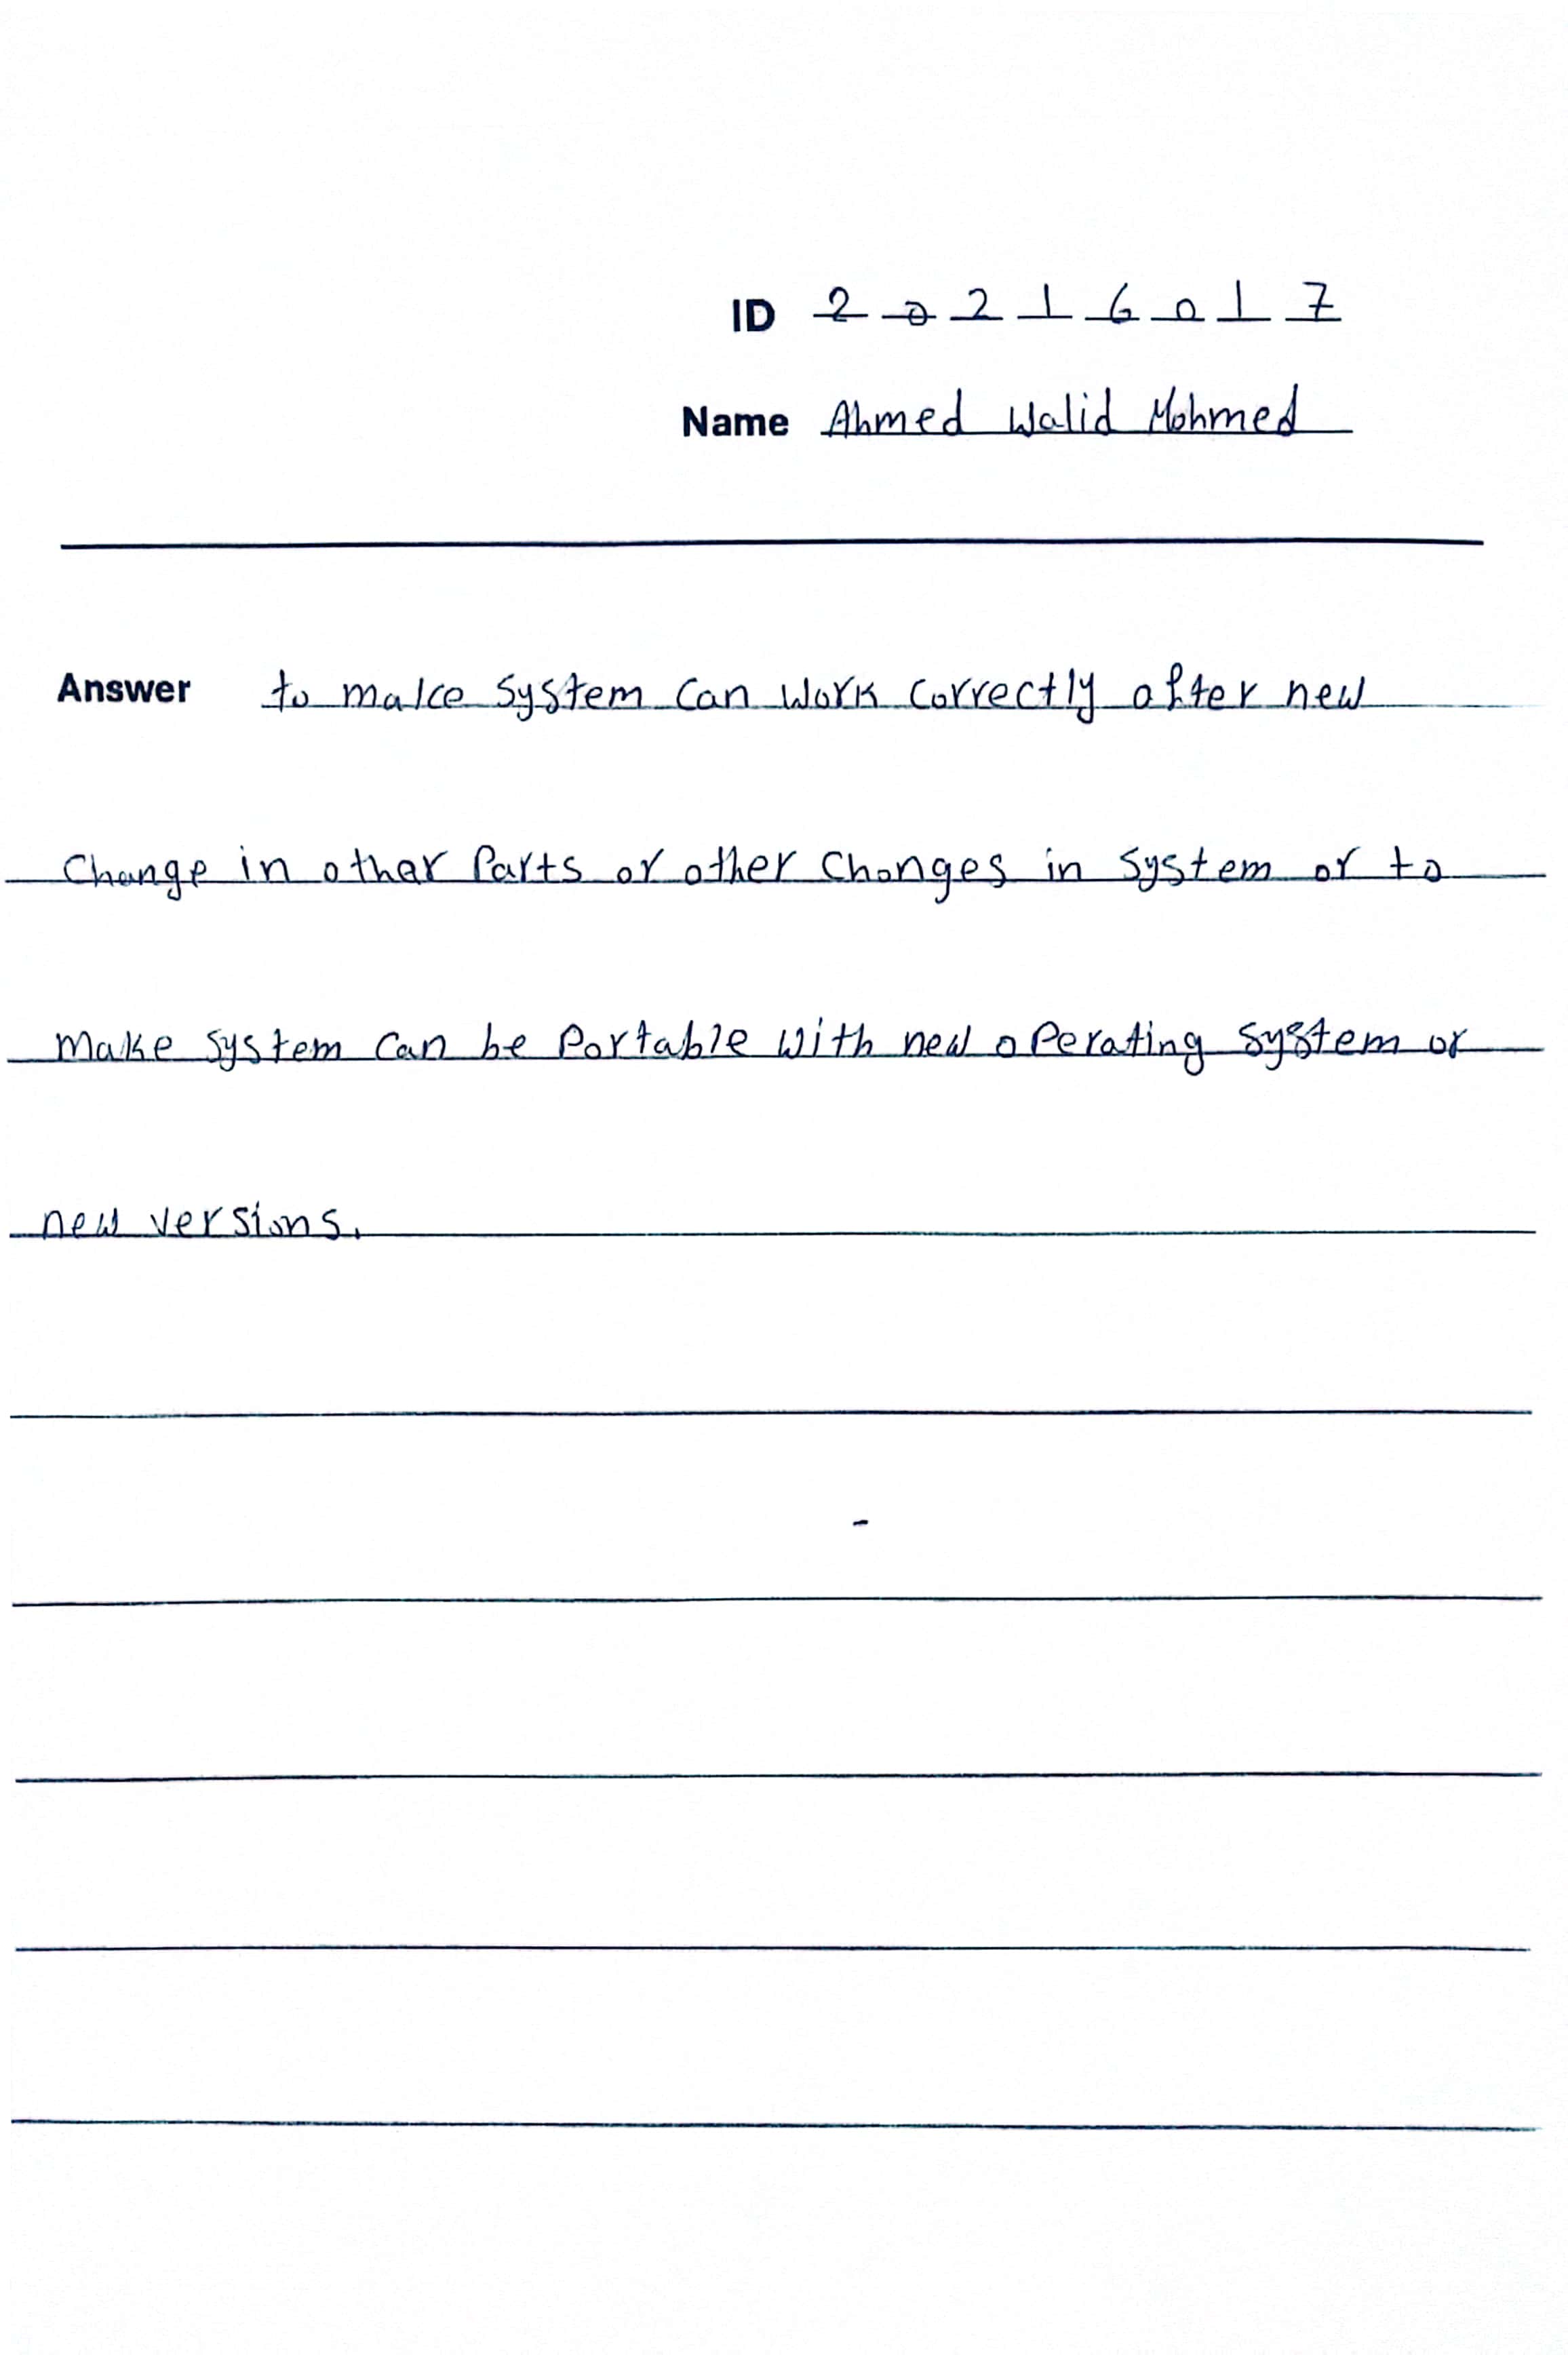 ID 20216017
Name Ahmed Walid Mohmed
Answer to make system can work correctly after new
change in other Parts or other changes in system or to
make system can be Portable with new operating system or
new versions.